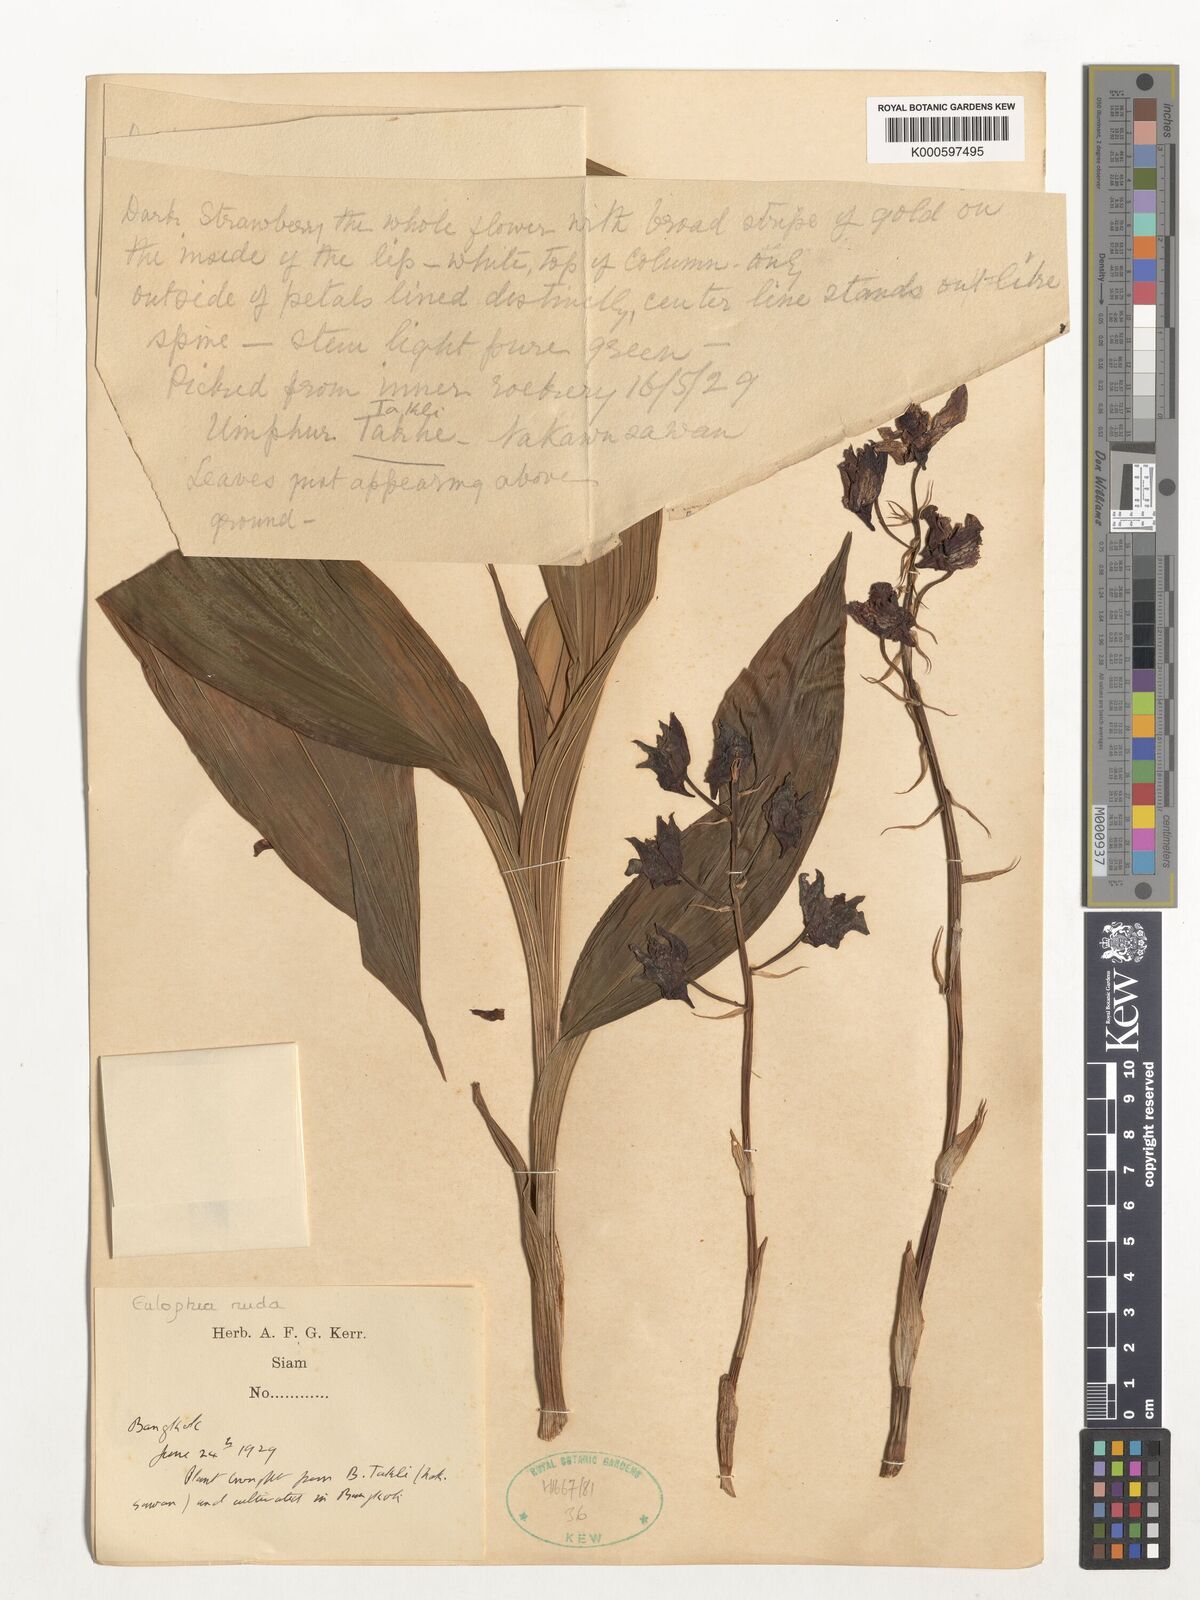 ROYAL BOTANIC GARDENS KEW
K000597495
Dark Strawberry the whole flower with broad stripe of gold on
the inside of the lip – white, top of column – only
outside of petals lined distinctly, center line stands out like
spine — stem light pure green –
Picked from inner rockery 16/5/29
Takli
Umphur Takhe – Nakawnsawan
Leaves just appearing above
ground –
Eulophia nuda
Herb. A. F. G. Kerr.
Siam
No............
Bangkok
June 24th 1929
Plant brought from B. Takli (Nak.
sawan) and cultivated in Bangkok
ROYAL BOTANIC GARDENS
H1667/81
36
KEW
inches
Density
Don Williams
centimeters
M000937
Royal Botanic Gardens
Kew
copyright reserved
10
9
8
7
6
5
4
3
2
1
0
cm